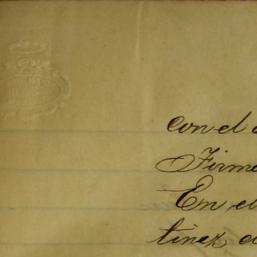 con el
Firme
En el
tinez